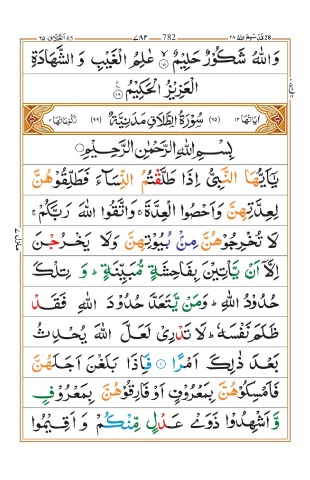 قد سمع الله ٢٨ 782 ٧٨٢ الطلاق ٦٥
وَاللّٰهُ شَكُوْرٌ حَلِيْمٌ ۙ عٰلِمُ الْغَيْبِ وَ الشَّهَادَةِ
الْعَزِيْزُ الْحَكِيْمُ
اٰيَاتُهَا ١٢ (٦٥) سُوْرَةُ الطَّلَاقِ مَدَنِيَّةٌ (٩٩) رُكُوْعَاتُهَا ٢
بِسْمِ اللّٰهِ الرَّحْمٰنِ الرَّحِيْمِ
يٰٓاَيُّهَا النَّبِيُّ اِذَا طَلَّقْتُمُ النِّسَآءَ فَطَلِّقُوْهُنَّ
لِعِدَّتِهِنَّ وَاَحْصُوا الْعِدَّةَ ۚ وَاتَّقُوا اللّٰهَ رَبَّكُمْ ۚ
لَا تُخْرِجُوْهُنَّ مِنْۢ بُيُوْتِهِنَّ وَلَا يَخْرُجْنَ
اِلَّاۤ اَنْ يَّاْتِيْنَ بِفَاحِشَةٍ مُّبَيِّنَةٍ ؕ وَ تِلْكَ
حُدُوْدُ اللّٰهِ ؕ وَمَنْ يَّتَعَدَّ حُدُوْدَ اللّٰهِ فَقَدْ
ظَلَمَ نَفْسَهٗ ؕ لَا تَدْرِيْ لَعَلَّ اللّٰهَ يُحْدِثُ
بَعْدَ ذٰلِكَ اَمْرًا ١ فَاِذَا بَلَغْنَ اَجَلَهُنَّ
فَاَمْسِكُوْهُنَّ بِمَعْرُوْفٍ اَوْ فَارِقُوْهُنَّ بِمَعْرُوْفٍ
وَّ اَشْهِدُوْا ذَوَيْ عَدْلٍ مِّنْكُمْ وَ اَقِيْمُوا